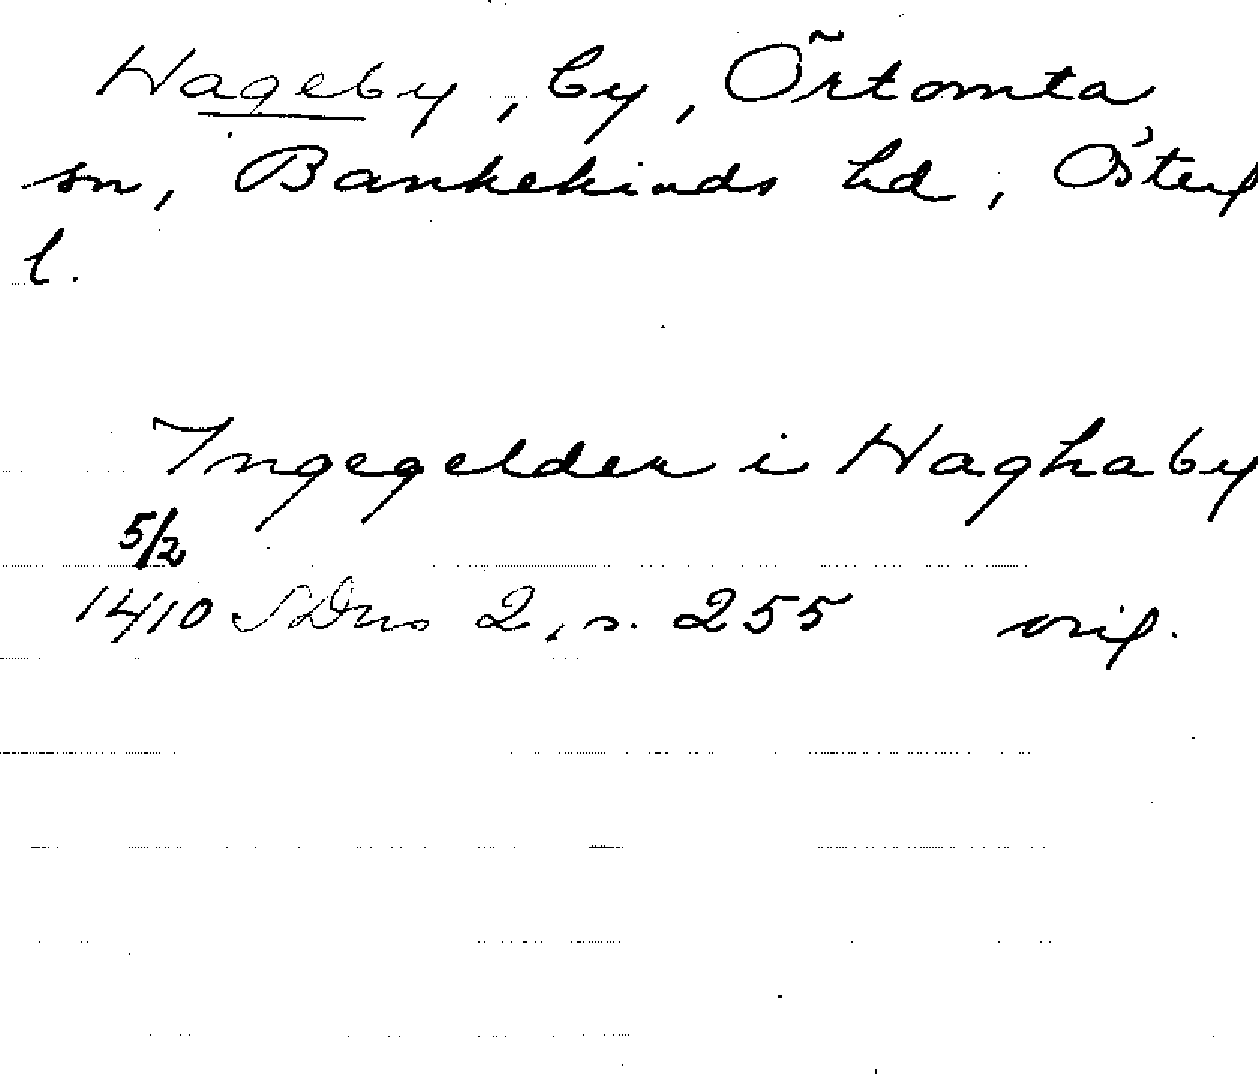 Hageby, by, Örtomta
sn, Bankekinds hd, Österg
l.
Ingegelder i Haghaby
5/2
1410 SDns 2, s. 255 orig.